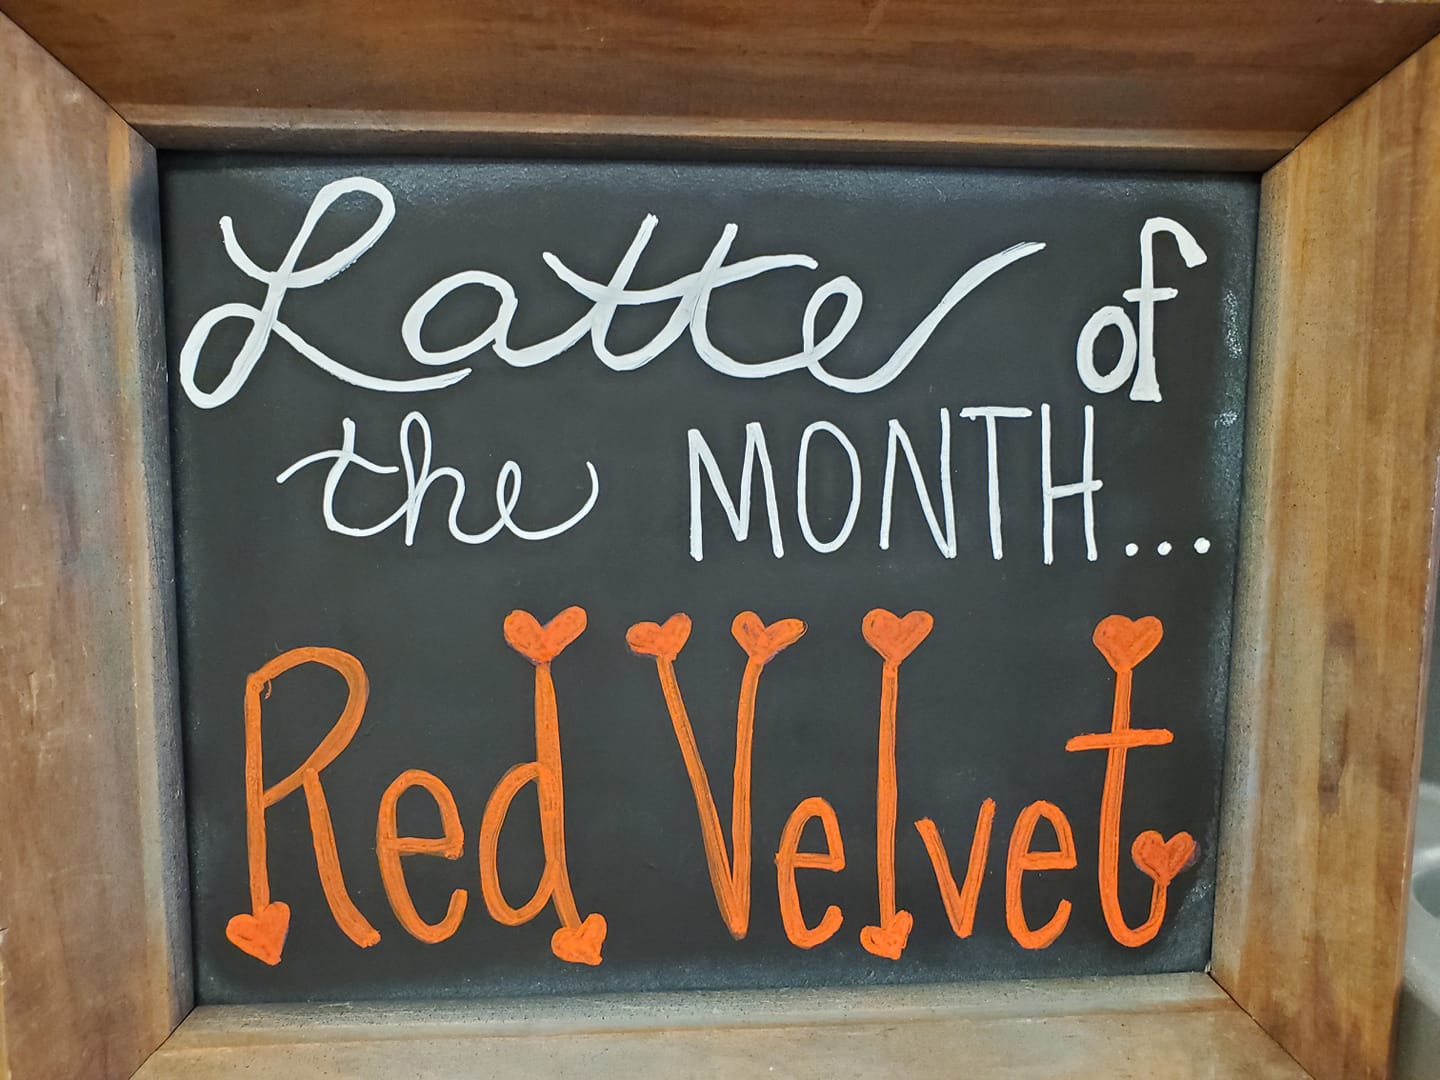 Latte of
the MONTH...
Red Velvet